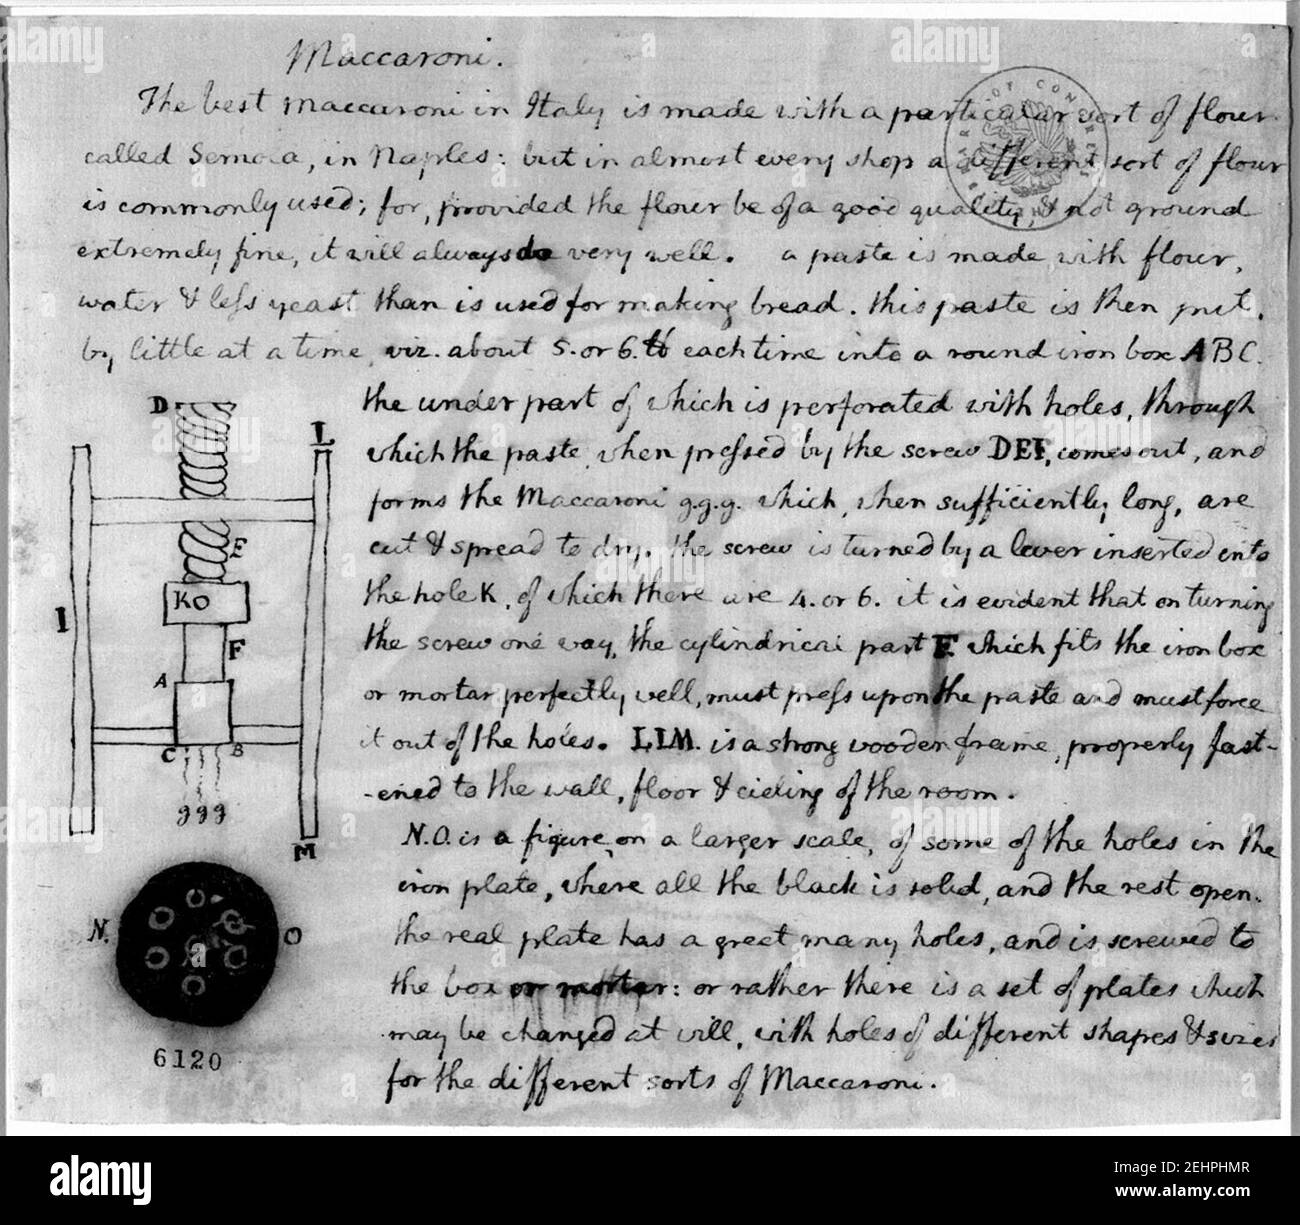 Maccaroni.
The best maccaroni in Italy is made with a particular sort of flour
called Semola, in Naples: but in almost every shop a different sort of flour
is commonly used; for, provided the flour be of a good quality, & not ground
extremely fine, it will always do very well. a paste is made with flour,
water & less yeast than is used for making bread. this paste is then put,
by little at a time, viz. about 5. or 6. lb each time into a round iron box ABC.
the under part of which is perforated with holes, through
which the paste, when pressed by the screw DEF, comes out, and
forms the Maccaroni g.g.g. which, when sufficiently long, are
cut & spread to dry. the screw is turned by a lever inserted into
the hole K, of which there are 4. or 6. it is evident that on turning
the screw one way, the cylindrical part F which fits the iron box
or mortar perfectly well, must press upon the paste and must force
it out of the holes. LIM. is a strong wooden frame, properly fast-
-ened to the wall, floor & cieling of the room.
N.O. is a figure, on a larger scale, of some of the holes in the
iron plate, where all the black is solid, and the rest open.
the real plate has a great many holes, and is screwed to
the box or mortar: or rather there is a set of plates which
may be changed at will, with holes of different shapes & sizes
for the different sorts of Maccaroni.
D
L
E
I
KO
F
A
C
B
ggg
M
N.
O
6120
alamy
a
Image ID: 2EHPHMR
www.alamy.com